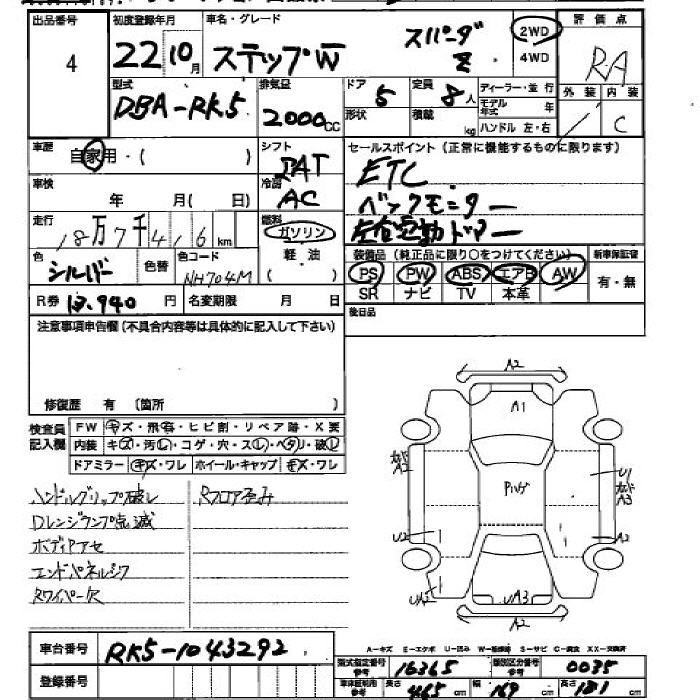 出品番号 初度登録年月 車名・グレード 評価点
4 22 10月 ステップW スパーダ Z 2WD 4WD RA
型式 排気量 ドア 定員 ディーラー・並行 外装 内装
DBA-RK5 2000CC 5 8人 モデル年式 年 C
形状 積載 kg ハンドル 左・右
車歴 自家用・( ) シフト セールスポイント(正常に機能するものに限ります)
DAT ETC
車検 年 月(日) 冷房 AC バックモニター
走行 18万7千416km 燃料 ガソリン 左右電動ドアー
色 シルバー 色替 色コード NH704M 軽油 ( )
装備品(純正品に限り○をつけてください) 新車保証書
PS PW ABS エアB AW 有・無
SR ナビ TV 本革
R券 13.940円 名変期限 月 日
後日品
注意事項申告欄(不具合内容等は具体的に記入して下さい)
修復歴 有 (箇所 )
検査員記入欄
FW キズ・飛石・ヒビ割・リペア跡・X要
内装 キズ・汚レ・コゲ・穴・スレ・ベタリ・破レ
ドアミラー キズ・ワレ ホイール・キャップ キズ・ワレ
ハンドルグリップ破レ Rフロア歪み
Dレンジランプ点滅
ボディアセ
エンドパネルシワ
Rワイパー欠
A2
A1
A2
U1
A3
U2
A2
UA3
A2
A-キズ E-エクボ U-凹み W-補修跡 S-サビ C-腐食 XX-交換済
車台番号 RK5-1043292
型式指定番号 参考 16365 類別区分番号 参考 0035
登録番号
車体証明用 参考 長さ 465cm 幅 169cm 高さ 181cm